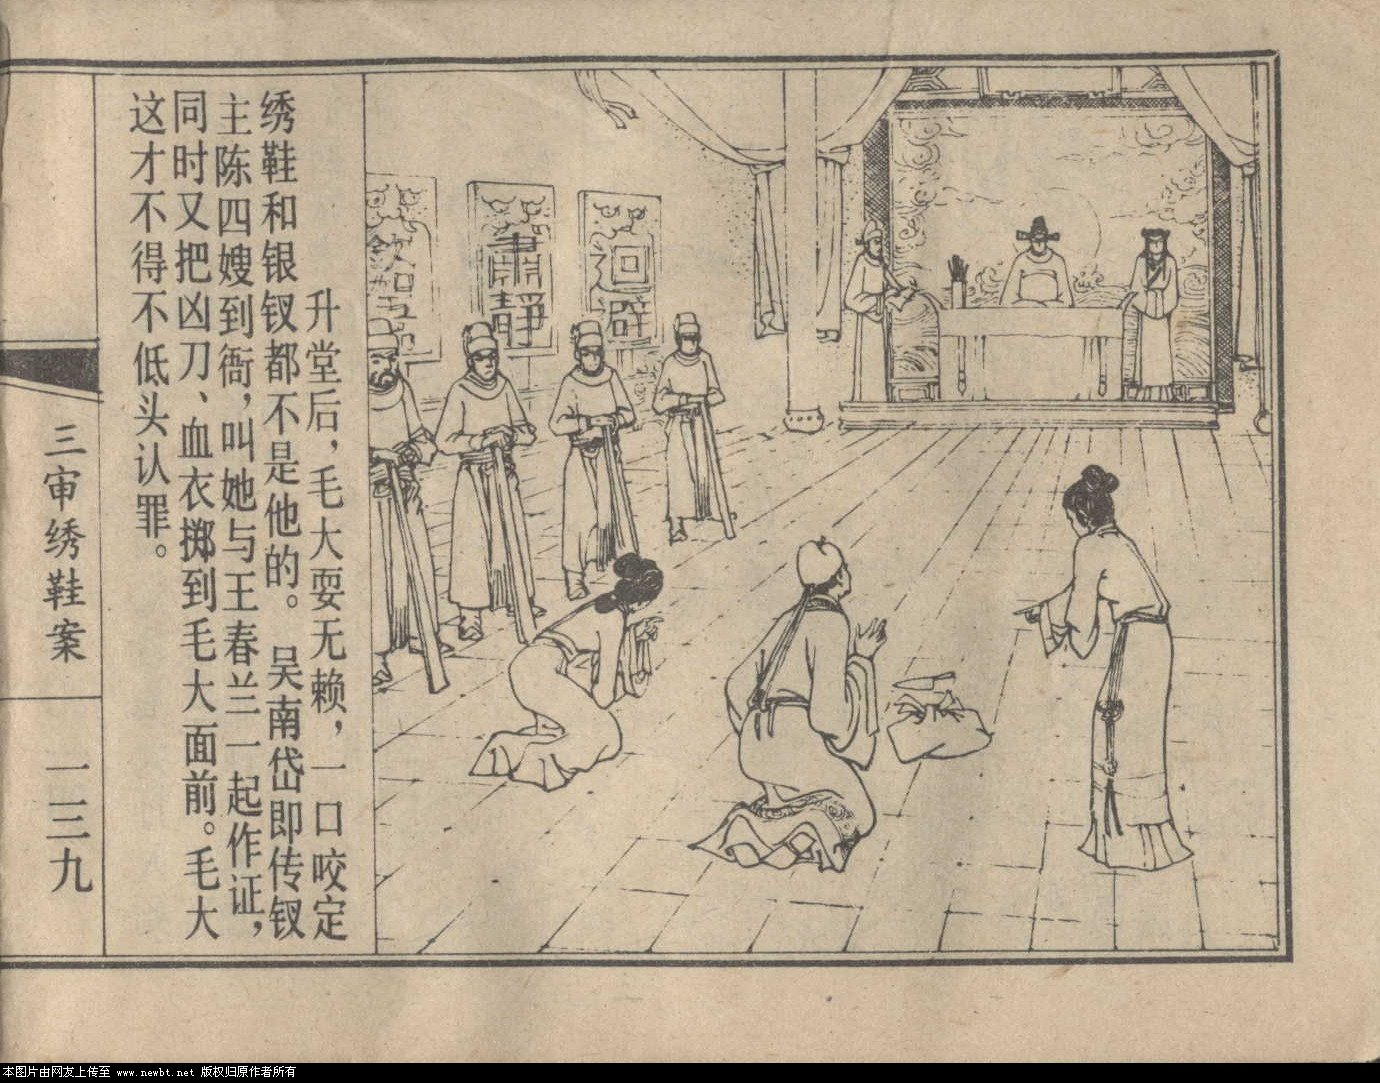 升堂后，毛大耍无赖，一口咬定
绣鞋和银钗都不是他的。吴南岱即传钗
主陈四嫂到衙，叫她与王春兰一起作证，
同时又把凶刀、血衣掷到毛大面前。毛大
这才不得不低头认罪。
三审绣鞋案
一三九
迴避
肃静
本图片由网友上传至 www.newbt.net 版权归原作者所有